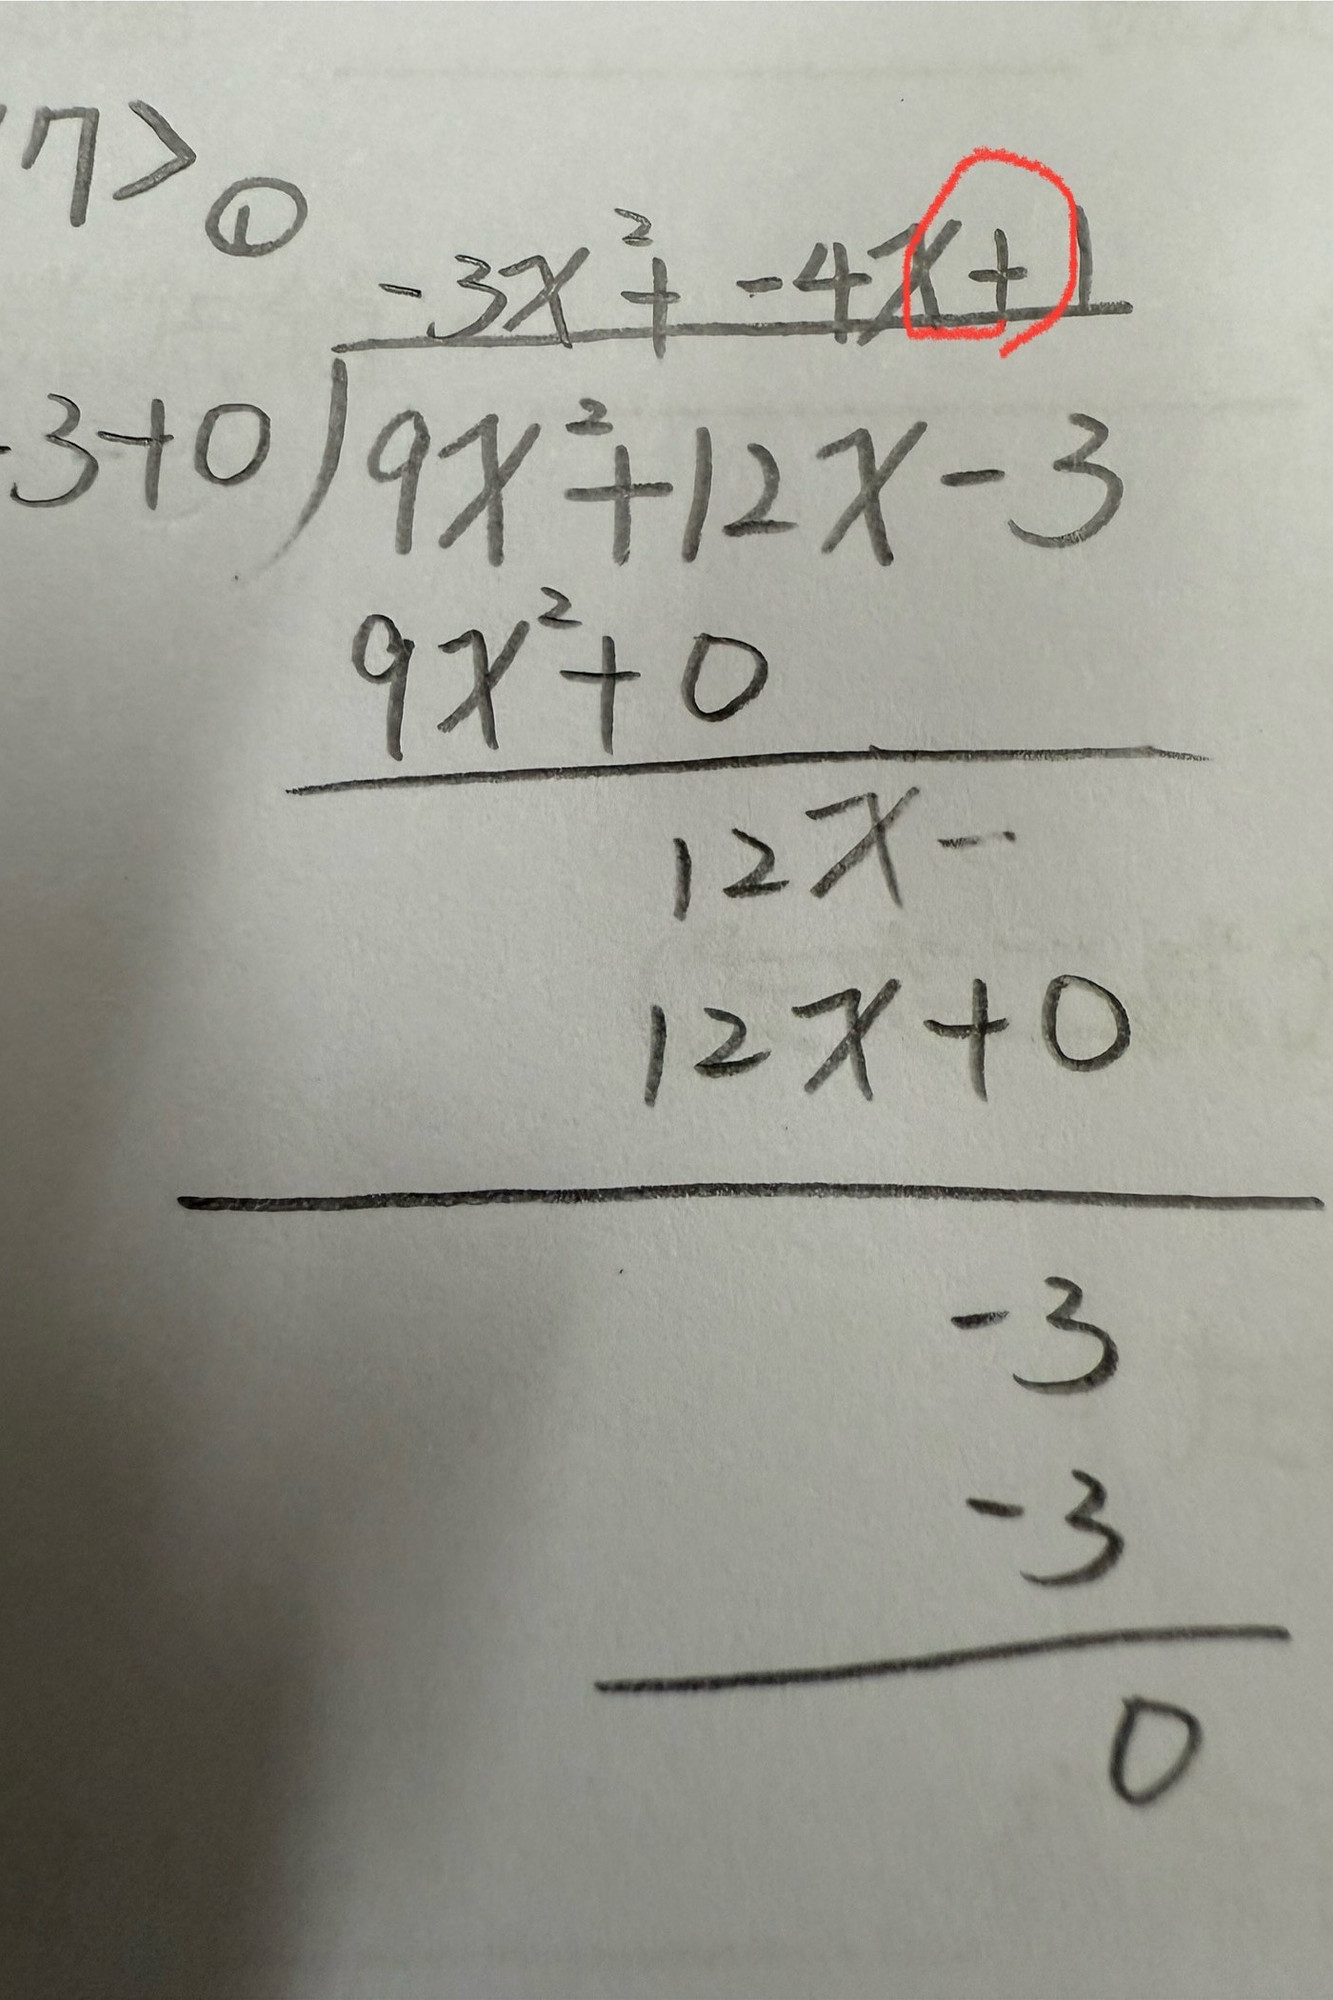 17> ①
-3x²+ -4x+1
-3+0)9x²+12x-3
9x²+0
12x-
12x+0
-3
-3
0